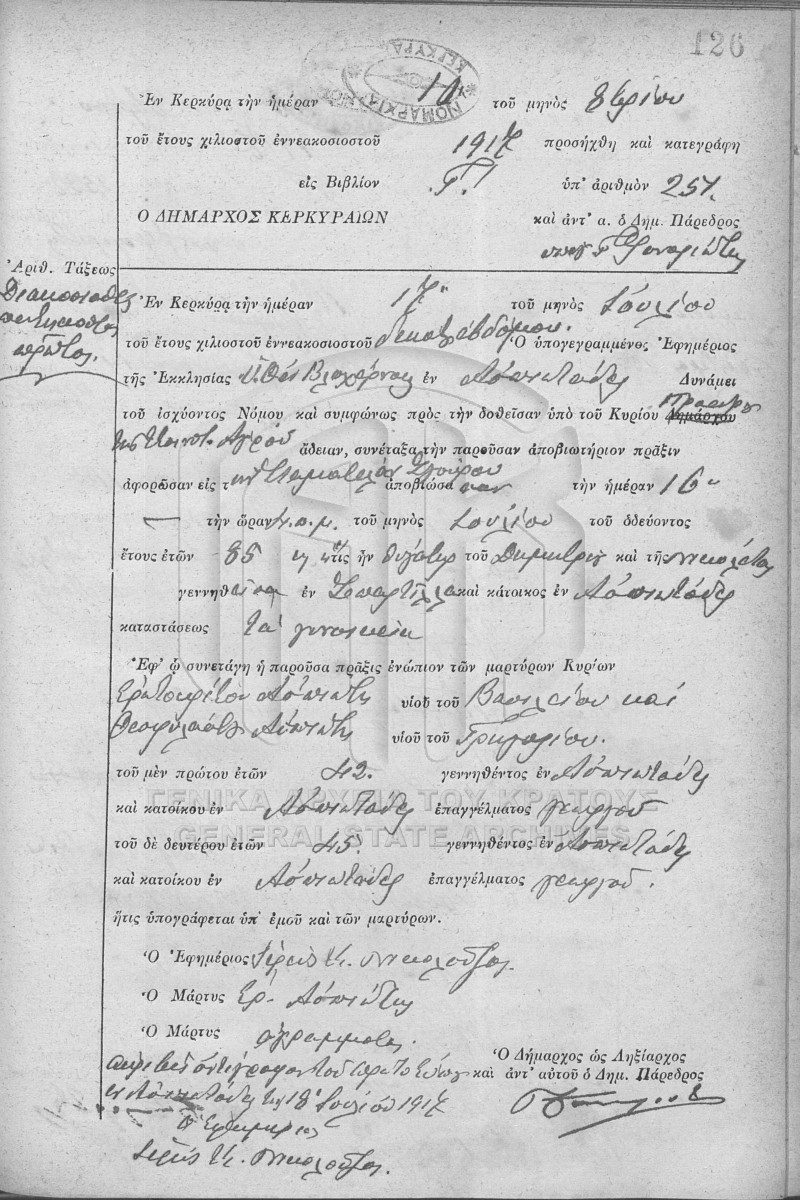 126
ΝΟΜΑΡΧΙΑ ΚΕΡΚΥΡΑ
Ἐν Κερκύρᾳ τὴν ἡμέραν 10 τοῦ μηνὸς 8βρίου
τοῦ ἔτους χιλιοστοῦ ἐννεακοσιοστοῦ 1917 προσήχθη καὶ κατεγράφη
εἰς Βιβλίον Γ! ὑπ' ἀριθμὸν 251.
Ο ΔΗΜΑΡΧΟΣ ΚΕΡΚΥΡΑΙΩΝ καὶ ἀντ' α. ὁ Δημ. Πάρεδρος
Ἀριθ. Τάξεως
Διακοσιοστὸς
πεντηκοστὸς
πρῶτος.
Ἐν Κερκύρᾳ τὴν ἡμέραν 17η τοῦ μηνὸς Ἰουλίου
τοῦ ἔτους χιλιοστοῦ ἐννεακοσιοστοῦ δεκάτου ἑβδόμου. Ὁ ὑπογεγραμμένος Ἐφημέριος
τῆς Ἐκκλησίας Ὑ. Θ. Βλαχέρνας ἐν Ἀσπιωτάδες Δυνάμει
τοῦ ἰσχύοντος Νόμου καὶ συμφώνως πρὸς τὴν δοθεῖσαν ὑπὸ τοῦ Κυρίου Δημάρχου Προέδρου
τῆς Κοινοτ. Ἀγροῦ ἄδειαν, συνέταξα τὴν παροῦσαν ἀποβιωτήριον πρᾶξιν
ἀφορῶσαν εἰς τὴν Σταματέλαν Σπύρου ἀποβιώσασαν τὴν ἡμέραν 16η
τὴν ὥραν π.μ. τοῦ μηνὸς Ἰουλίου τοῦ ὁδεύοντος
ἔτους ἐτῶν 85 ἥτις ἦν θυγάτηρ τοῦ Δημητρίου καὶ τῆς Νικολέτας
γεννηθεῖσα ἐν καὶ κάτοικος ἐν Ἀσπιωτάδες
καταστάσεως τὰ γυναικεῖα
Ἐφ' ᾧ συνετάγη ἡ παροῦσα πρᾶξις ἐνώπιον τῶν μαρτύρων Κυρίων
Ἐρωτόκριτον Ἀσπιώτη υἱοῦ τοῦ Βασιλείου καὶ
Θεοφύλακτος Ἀσπιώτη υἱοῦ τοῦ Γρηγορίου.
τοῦ μὲν πρώτου ἐτῶν 42. γεννηθέντος ἐν Ἀσπιωτάδες
καὶ κατοίκου ἐν Ἀσπιωτάδες ἐπαγγέλματος γεωργοῦ
τοῦ δὲ δευτέρου ἐτῶν 45. γεννηθέντος ἐν Ἀσπιωτάδες
καὶ κατοίκου ἐν Ἀσπιωτάδες ἐπαγγέλματος γεωργοῦ.
ἥτις ὑπογράφεται ὑπ' ἐμοῦ καὶ τῶν μαρτύρων.
Ὁ Ἐφημέριος Ἱερεὺς Νικολοῦζος.
Ὁ Μάρτυς Ἐρ. Ἀσπιώτης
Ὁ Μάρτυς ἀγράμματος.
Ὁ Δήμαρχος ὡς Ληξίαρχος
καὶ ἀντ' αὐτοῦ ὁ Δημ. Πάρεδρος
ἀκριβὲς ἀντίγραφον τοῦ πρωτοτύπου
ἐν Ἀσπιωτάδες τῇ 18 Ἰουλίου 1917
Ὁ Ἐφημέριος
Ἱερεὺς Νικολοῦζος.
ΓΕΝΙΚΑ ΑΡΧΕΙΑ ΤΟΥ ΚΡΑΤΟΥΣ
GENERAL STATE ARCHIVES